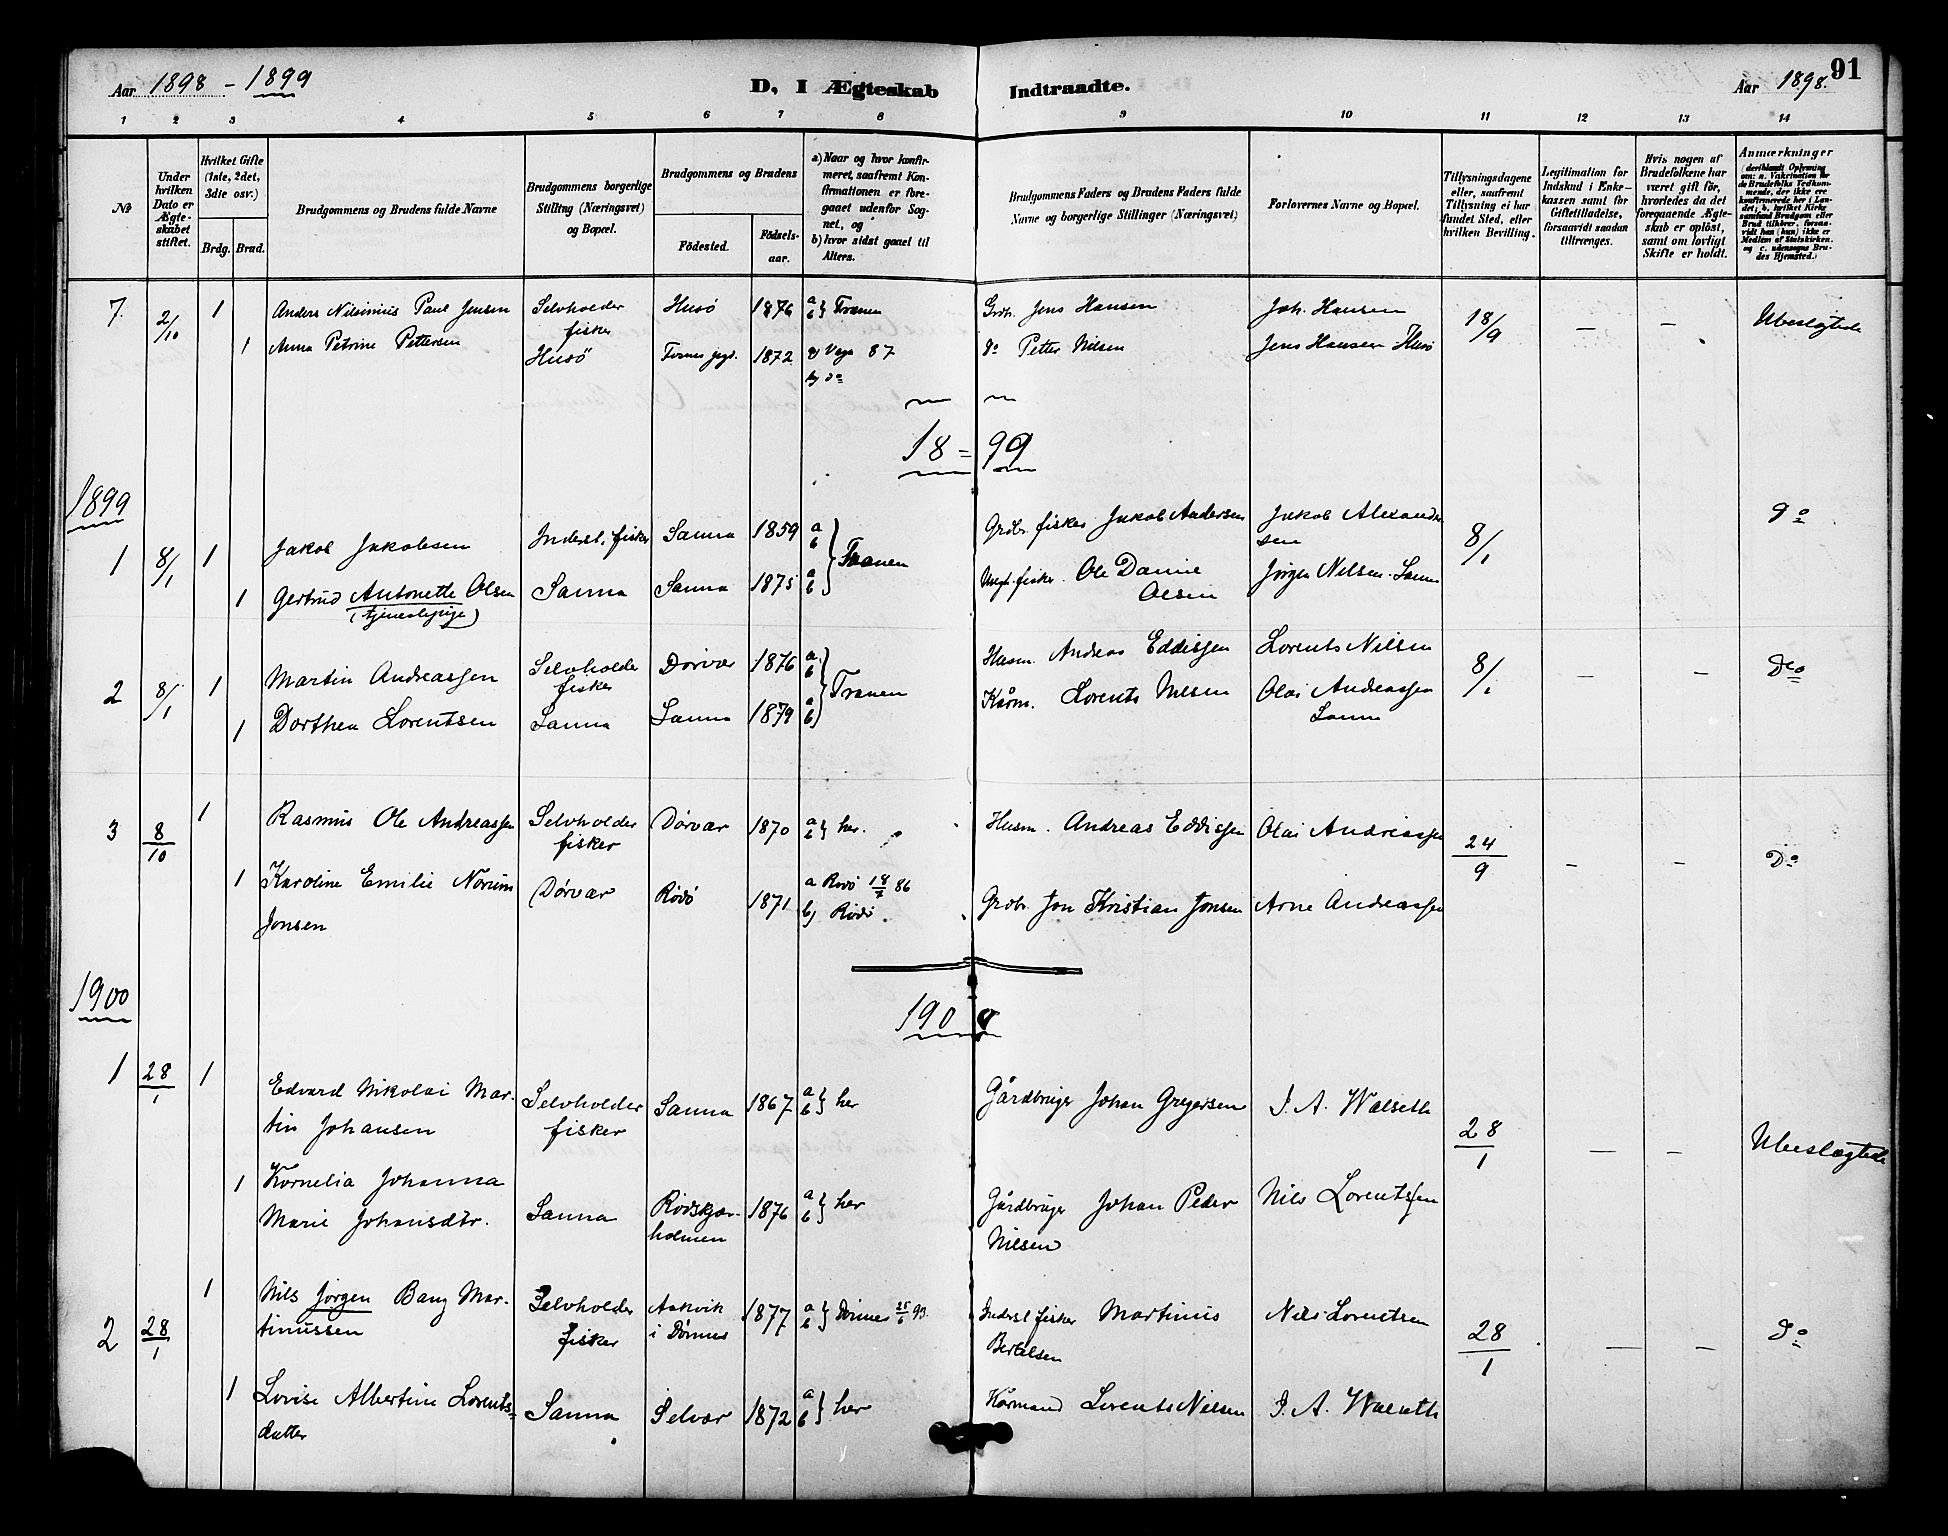 Aar 1898 - 1899
D, I Ægteskab
Indtraadte.
Aar 1898.
91
1 2 3 4 5 6 7 8 9 10 11 12 13 14
№
Under hvilken Dato er Ægteskabet stiftet.
Hvilket Gifte (1ste, 2det, 3die osv.)
Brdg. Brud.
Brudgommens og Brudens fulde Navne
Brudgommens borgerlige Stilling (Næringsvei) og Bopæl.
Brudgommens og Brudens
Fødested.
Fødsels-aar.
a) Naar og hvor konfirmeret, saafremt Konfirmationen er foregaaet udenfor Sognet, og
b) hvor sidst gaaet til Alters.
Brudgommens Faders og Brudens Faders fulde Navne og borgerlige Stillinger (Næringsvei)
Forlovernes Navne og Bopæl.
Tillysningsdagene eller, saafremt Tillysning ei har fundet Sted, efter hvilken Bevilling.
Legitimation for Indskud i Enkekassen samt for Giftetilladelse, forsaavidt saadan tiltrænges.
Hvis nogen af Brudefolkene har været gift før, hvorledes da det foregaaende Ægteskab er opløst, samt om lovligt Skifte er holdt.
Anmærkninger
(deriblandt Oplysning om: a. Vakcination for de Brudefolks Vedkommende, der ikke ere konfirmerede her i Landet; b. hvilket Kirkesamfund Brudgom eller Brud tilhører, forsaavidt han (hun) ikke er Medlem af Statskirken, og c. udensogns Brudes Hjemsted.)
7 2/10 1 Anders Nilsinius Paul Jensen Selvholder fisker Husö 1876 a b } Trænen Grdb. Jens Hansen Joh. Hansen 18/9 — — Ubeslægtede
1 Anna Petrine Pettersen Husö 1872 a) Vega 87 b) do do Petter Nilsen Jens Hansen Husö
18 = 99
1899
1 8/1 1 Jakob Jakobsen Inderst, fisker Sanna 1859 a b Grdbr. fisker Jakob Andersen Jakob Alexandersen 8/1 do
1 Gertrud Antonette Olsen Sanna Sanna 1875 a b } Trænen fisker Ole Danie Olsen Jørgen Nilsen Sanna
(tjenestepige)
2 8/1 1 Martin Andreassen Selvholder fisker Dørvær 1876 a b Husm. Andreas Eddissen Lorents Nilsen 8/1 — — Do
1 Dorthea Lorentsen Sanna Sanna 1879 a b } Trænen Kårm. Lorents Nilsen Olai Andreassen Sanna
3 8/10 1 Rasmus Ole Andreassen Selvholder fisker Dørvær 1870 a b } her. Husm. Andreas Eddissen Olai Andreassen 24/9 — — Do
1 Karoline Emilie Norum Jonsen Dørvær Rödö 1871 a Rödö 18/7 86 b) Rödö. Grdbr. Jon Kristian Jonsen Arne Andreassen
1900
1900
1 28/1 1 Edvard Nikolai Martin Johansen Selvholder fisker Sanna 1867 a b } her Gårdbruger Johan Gregersen J. A. Walseth 28/1 — — Ubeslægtede
1 Kornelia Johanna Marie Johansdtr. Sanna Rødskjærholmen 1876 a b } her Gårdbruger Johan Peder Nilsen Nils Lorentssen
2 28/1 1 Nils Jørgen Bang Martinussen Selvholder fisker Aakvik i Dønnes 1877 a b } Dønnes 25/6 99. Inderst fisker Martinus Bertelsen Nils Lorentsen 28/1 — — do
1 Lovise Albertine Lorentsdatter Sanna Selvær 1872 a b } her Kårmand Lorents Nilsen J. A. Walseth